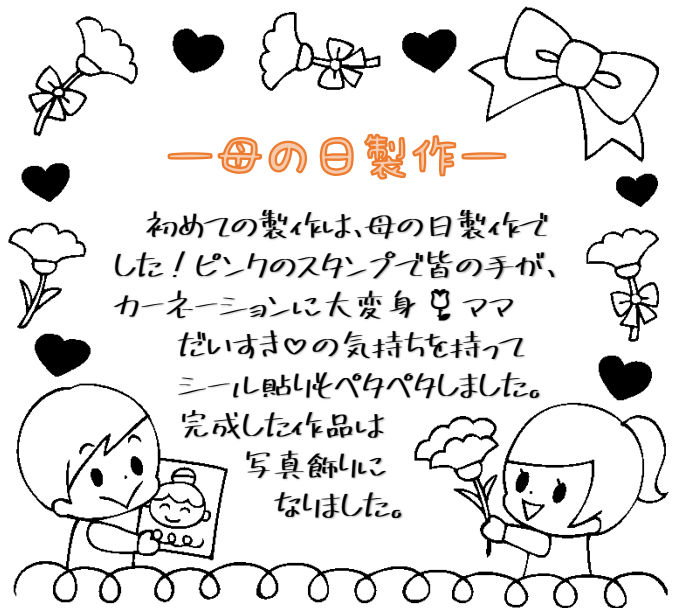 ー母の日製作ー
初めての製作は、母の日製作で
した！ピンクのスタンプで皆の手が、
カーネーションに大変身🌷ママ
だいすき♡の気持ちを持って
シール貼りもペタペタしました。
完成した作品は
写真飾りに
なりました。